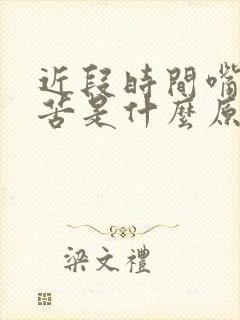 近段時間嘴
苦是什麼原
梁文禮